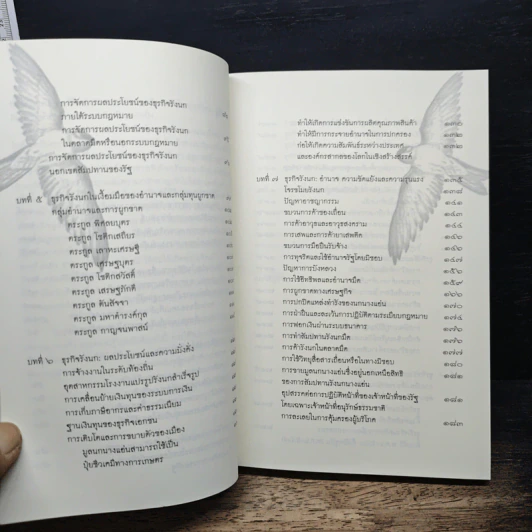 การจัดการผลประโยชน์ของธุรกิจรังนก
ภายใต้ระบบกฎหมาย
การจัดการผลประโยชน์ของธุรกิจรังนก
ในตลาดมืดหรือนอกระบบกฎหมาย
การจัดการผลประโยชน์ของธุรกิจรังนก
นอกเขตสัมปทานของรัฐ
บทที่ ๕ ธุรกิจรังนกในเงื้อมมือของอำนาจและกลุ่มทุนผูกขาด
กลุ่มอำนาจและการผูกขาด
ตระกูล พิศลยบุตร
ตระกูล โชติกเสถียร
ตระกูล เลาหะเศรษฐี
ตระกูล เศรษฐบุตร
ตระกูล โชติกสวัสดิ์
ตระกูล เศรษฐภักดี
ตระกูล ตันสัจจา
ตระกูล มหาดำรงค์กุล
ตระกูล กาญจนพาสน์
บทที่ ๖ ธุรกิจรังนก: ผลประโยชน์และความมั่งคั่ง
การจ้างงานในระดับท้องถิ่น
อุตสาหกรรมโรงงานแปรรูปรังนกสำเร็จรูป
การเคลื่อนย้ายเงินทุนของระบบการเงิน
การเก็บภาษีอากรและค่าธรรมเนียม
ฐานเงินทุนของธุรกิจเอกชน
การเติบโตและการขยายตัวของเมือง
มูลนกนางแอ่นสามารถใช้เป็น
ปุ๋ยชีวเคมีทางการเกษตร
ทำให้เกิดการแข่งขันการผลิตคุณภาพสินค้า ๑๓๐
ทำให้มีการกระจายอำนาจในการปกครอง ๑๓๒
ก่อให้เกิดความสัมพันธ์ระหว่างประเทศ ๑๓๒
และองค์กรสากลของโลกในเชิงสร้างสรรค์
บทที่ ๗ ธุรกิจรังนก: อำนาจ ความขัดแย้งและความรุนแรง
โจรขโมยรังนก ๑๓๘
ปัญหาอาชญากรรม ๑๔๑
ขบวนการค้าของเถื่อน ๑๔๓
การค้าอาวุธและอาวุธสงคราม ๑๔๔
การเสพและการค้ายาเสพติด ๑๔๕
ขบวนการมือปืนรับจ้าง ๑๔๕
การทุจริตและใช้อำนาจรัฐโดยมิชอบ ๑๔๗
ปัญหาการบังหลวง
การใช้อิทธิพลและอำนาจมืด ๑๕๙
การผูกขาดทางเศรษฐกิจ ๑๗๐
การปกปิดแหล่งทำรังของนกนางแอ่น
การฝ่าฝืนและละเว้นการปฏิบัติตามระเบียบกฎหมาย ๑๗๐
การฟอกเงินผ่านระบบธนาคาร ๑๗๓
การทำสัมปทานรังนกมืด
การค้ารังนกในตลาดมืด ๑๗๗
การใช้วิทยุสื่อสารเถื่อนหรือในทางมิชอบ ๑๘๐
การขายมูลนกนางแอ่นซึ่งอยู่นอกเหนือสิทธิ
ของการสัมปทานรังนกนางแอ่น
อุปสรรคต่อการปฏิบัติหน้าที่ของเจ้าหน้าที่ของรัฐ ๑๘๒
โดยเฉพาะเจ้าหน้าที่อนุรักษ์ธรรมชาติ
การละเลยในการคุ้มครองผู้บริโภค ๑๘๓